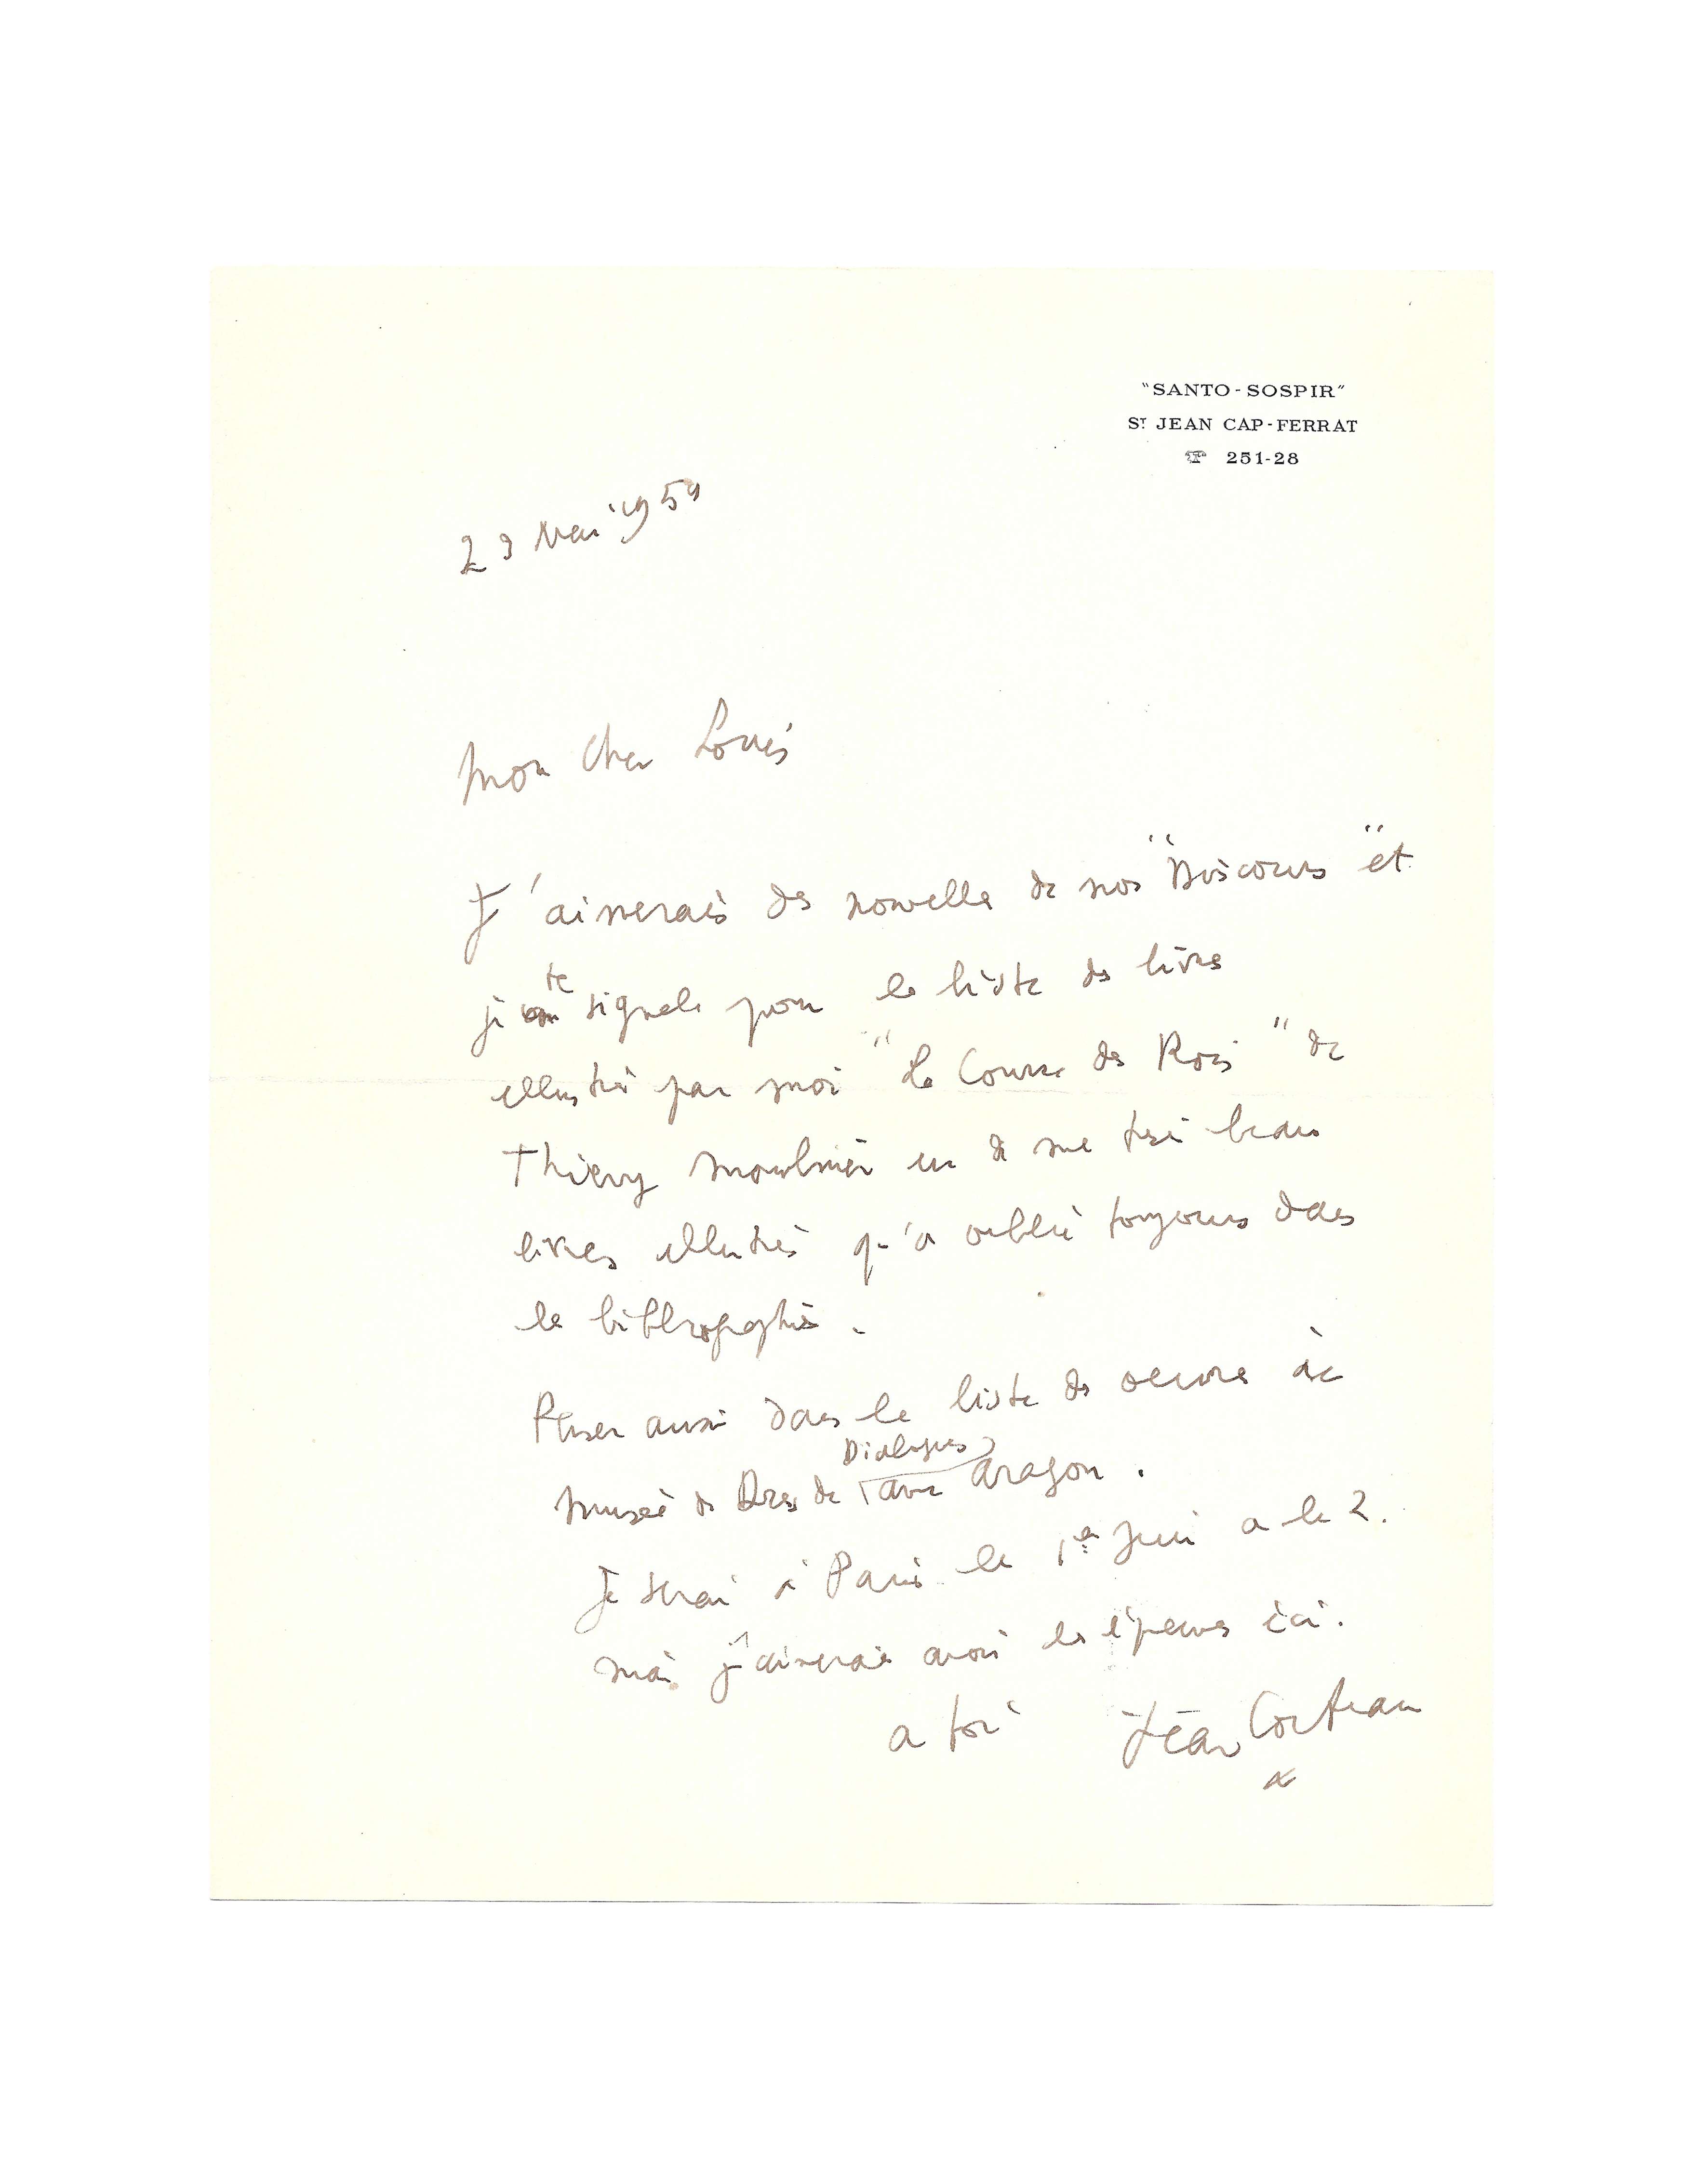 "SANTO-SOSPIR"
ST JEAN CAP-FERRAT
☎ 251-28
23 Mai 1959
Mon cher Louis
J'aimerais des nouvelles de nos "Discours" et
je te signale pour la liste des livres
illustrés par moi "La Course des Rois" de
Thierry Maulnier un de mes très beaux
livres illustrés qu'on oublie toujours dans
la bibliographie.
Penser aussi dans la liste des œuvres au
Musée de Dresde Dialogues avec Aragon.
Je serai à Paris le 1er Juin ou le 2.
mais j'aimerais avoir les épreuves ici.
a toi Jean Cocteau